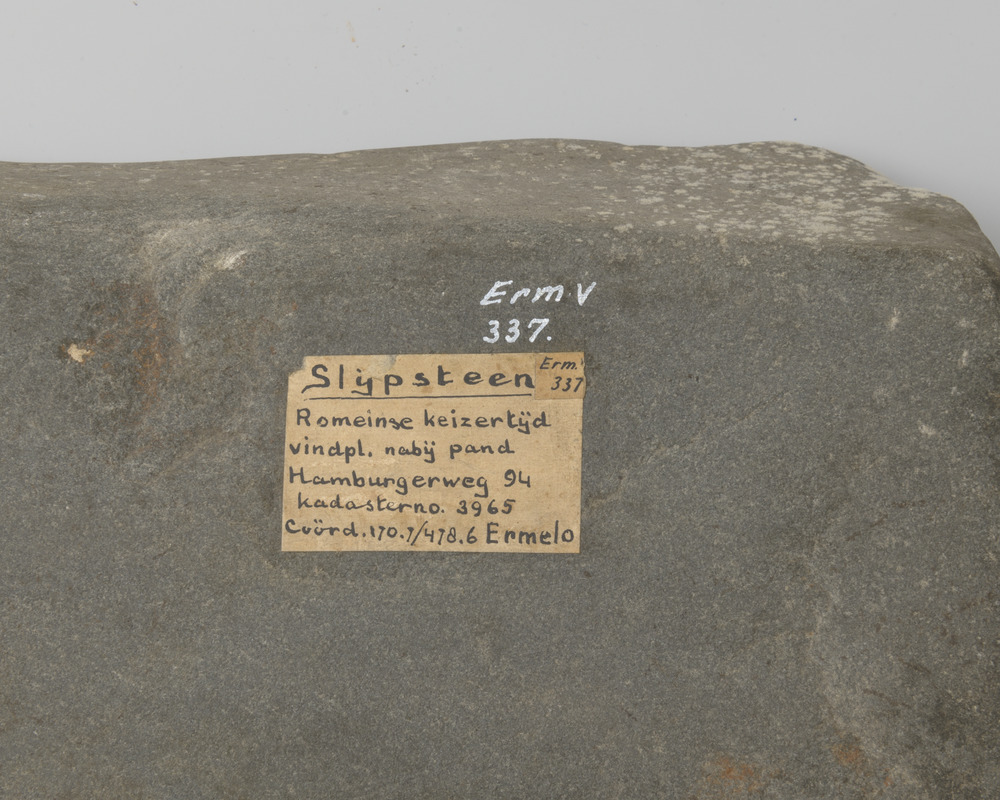 Erm V
337.
Slijpsteen
Erm.
337
Romeinse keizertijd
vindpl. nabij pand
Hamburgerweg 94
kadasterno. 3965
Coörd. 170.7/478.6 Ermelo